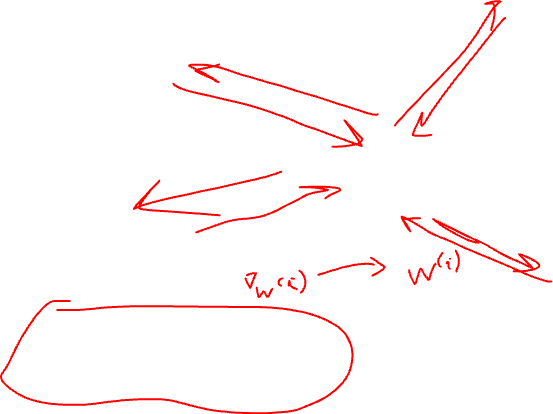 ∇w⁽ⁱ⁾ → w⁽ⁱ⁾